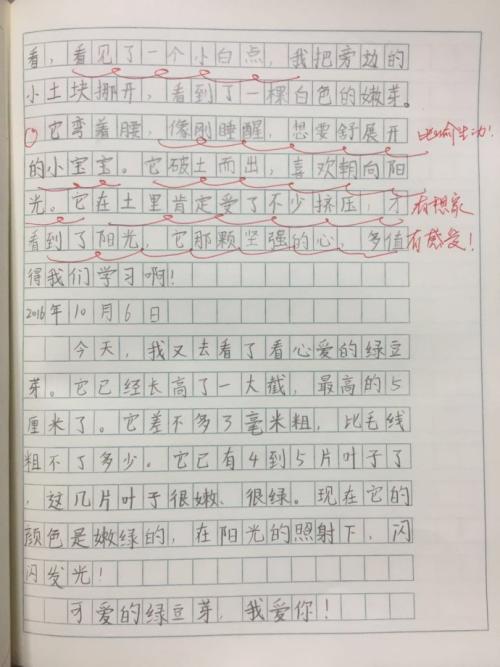 看，看见了一个小白点，我把旁边的
小土块挪开，看到了一棵白色的嫩芽。
它弯着腰，像刚睡醒，想要舒展开
比喻生动！
的小宝宝。它破土而出，喜欢朝向阳
光。它在土里肯定受了不少挤压，才
有想象
看到了阳光，它那颗坚强的心，多值
有感受！
得我们学习啊！
2016年10月6日
今天，我又去看了看心爱的绿豆
芽。它已经长高了一大截，最高的5
厘米了。它差不多了毫米粗，比毛线
粗不了多少。它已有4到5片叶子了
，这几片叶子很嫩、很绿。现在它的
颜色是嫩绿的，在阳光的照射下，闪
闪发光！
可爱的绿豆芽，我爱你！